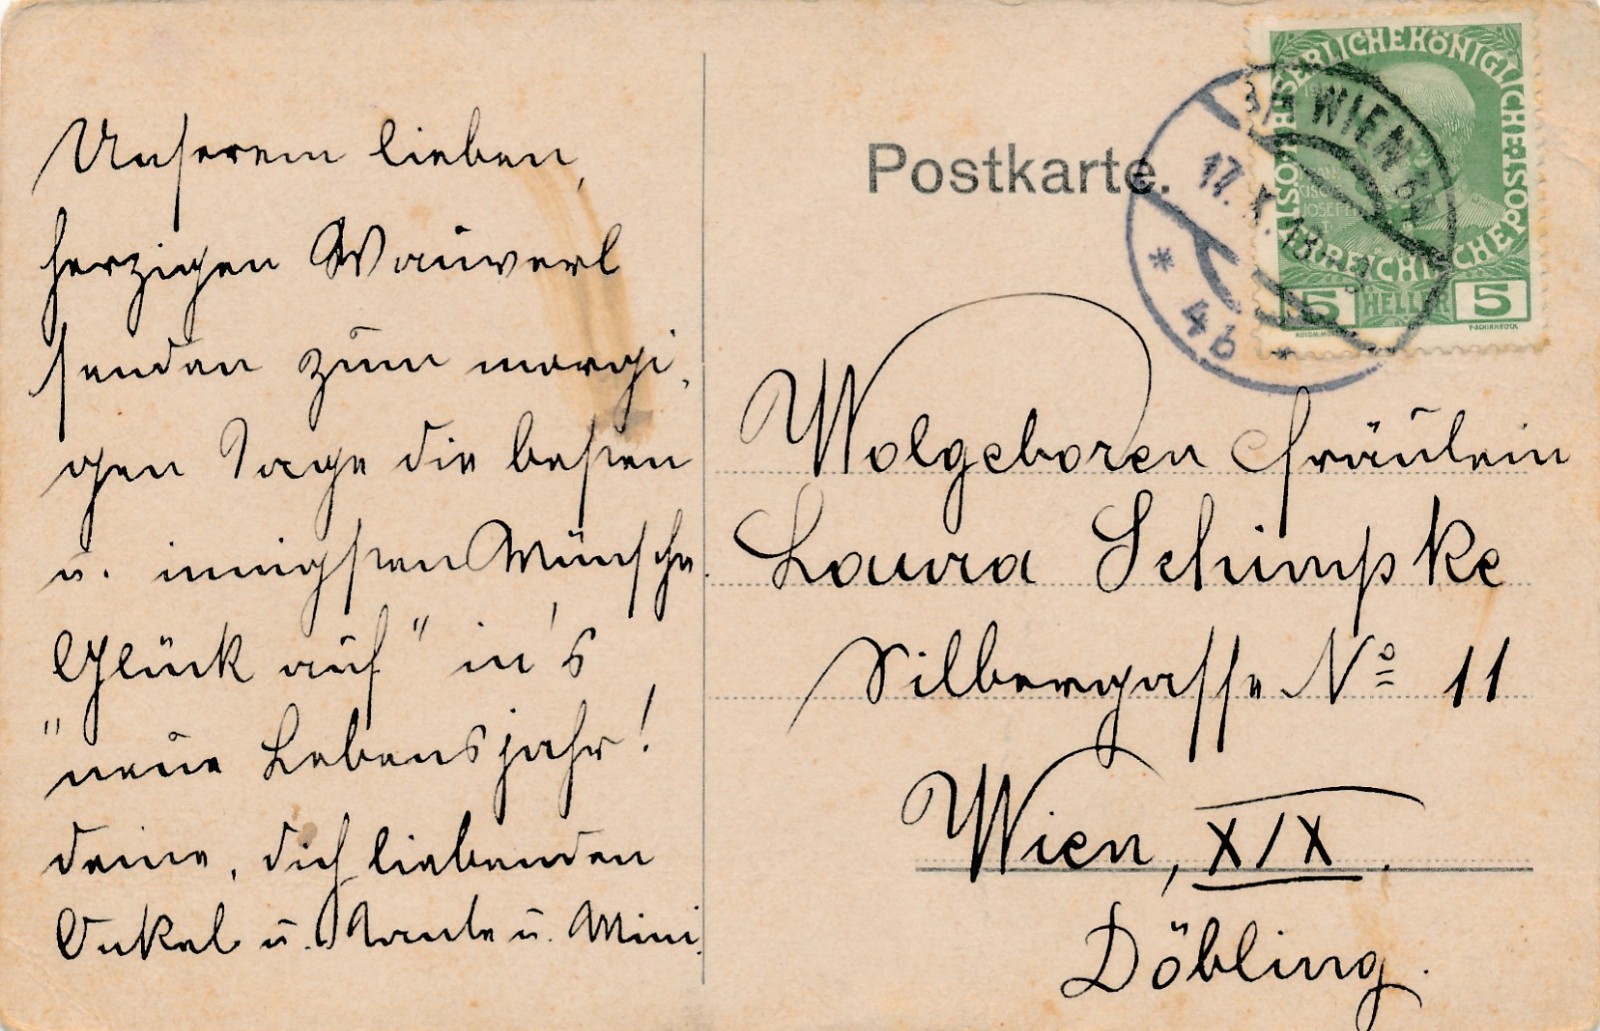 Unserem lieben,
herzigen Wauwerl
senden zum morgi,
gen Tage die besten
u. innigsten Wünsche.
Glück auf" in's
"neue Lebensjahr!
deine, dich liebenden
Onkel u. Tante u. Mini.
Postkarte.
WIEN
17. X. 13
* 4b *
KAISERLICHE KÖNIGLICHE ÖSTERREICHISCHE POST
5 HELLER 5
Wolgeboren Fräulein
Laura Schimpke
Silbergasse No 11
Wien, XIX.
Döbling.